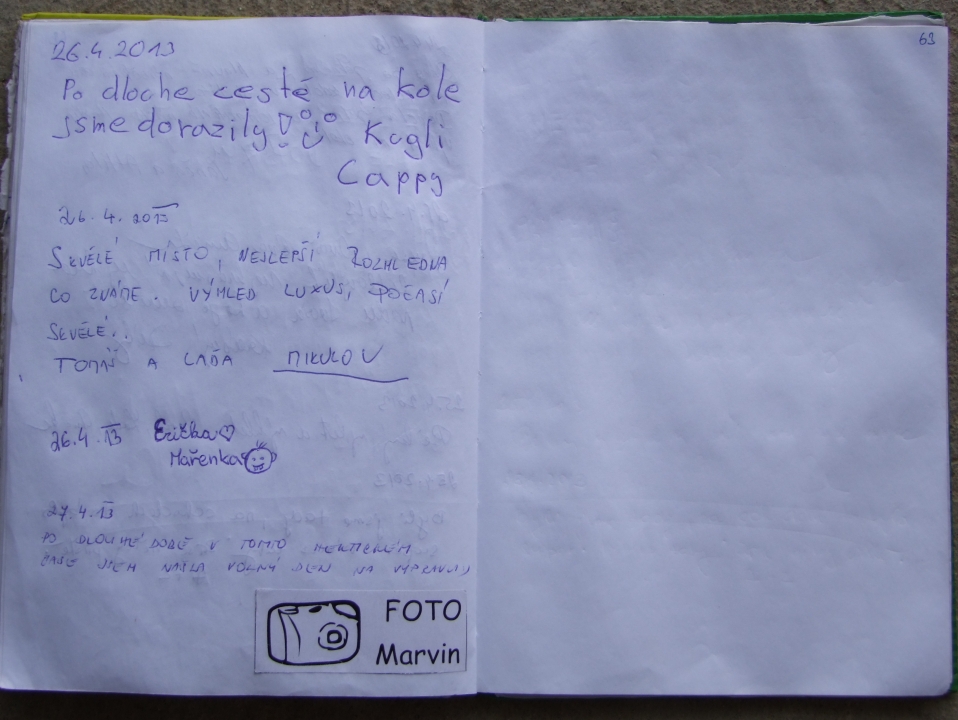 26.4.2013
Po dloche cestě na kole
jsme dorazily! Kugli
Cappy
26.4.2013
SKVĚLÉ MÍSTO, NEJLEPŠÍ ROZHLEDNA
CO ZNÁME. VÝHLED LUXUS, POČASÍ
SKVĚLÉ..
TOMÁŠ A LAĎA MIKULOV
26.4.13 Eritka
Mařenka
27.4.13
PO DLOUHÉ DOBĚ V TOMTO HEKTICKÉM
ČASE JSEM NAŠLA VOLNÝ DEN NA VÝPRAVU
FOTO
Marvin
63